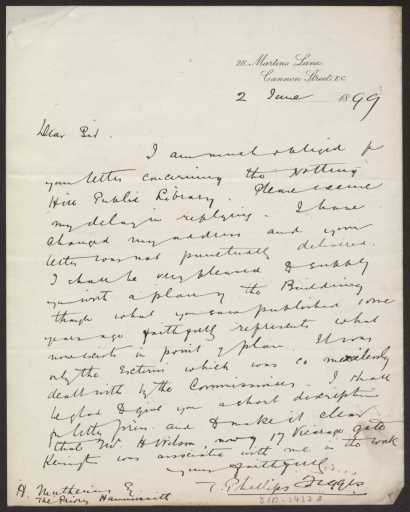 28, Martins Lane,
Cannon Street, E.C.
2 June 1899
Dear Sir.
I am much obliged for
your letter concerning the Notting
Hill Public Library. Please excuse
my delay in replying. I have
changed my address and your
letter was not punctually delivered.
I shall be very pleased to supply
you with a plan of the Building
though what you saw published some
years ago faithfully represents what
now exists in point of plan. It was
only the Exterior which was so
dealt with by the Commissioners. I shall
be glad to give you a short description
for letter press and to make it clear
that Mr H. Wilson, now of 17 Vicarage gate
Kensgtn was associated with me in the work
yours faithfully
T. Phillips Figgis
H. Muthesius Eq
The Priory Hammersmith